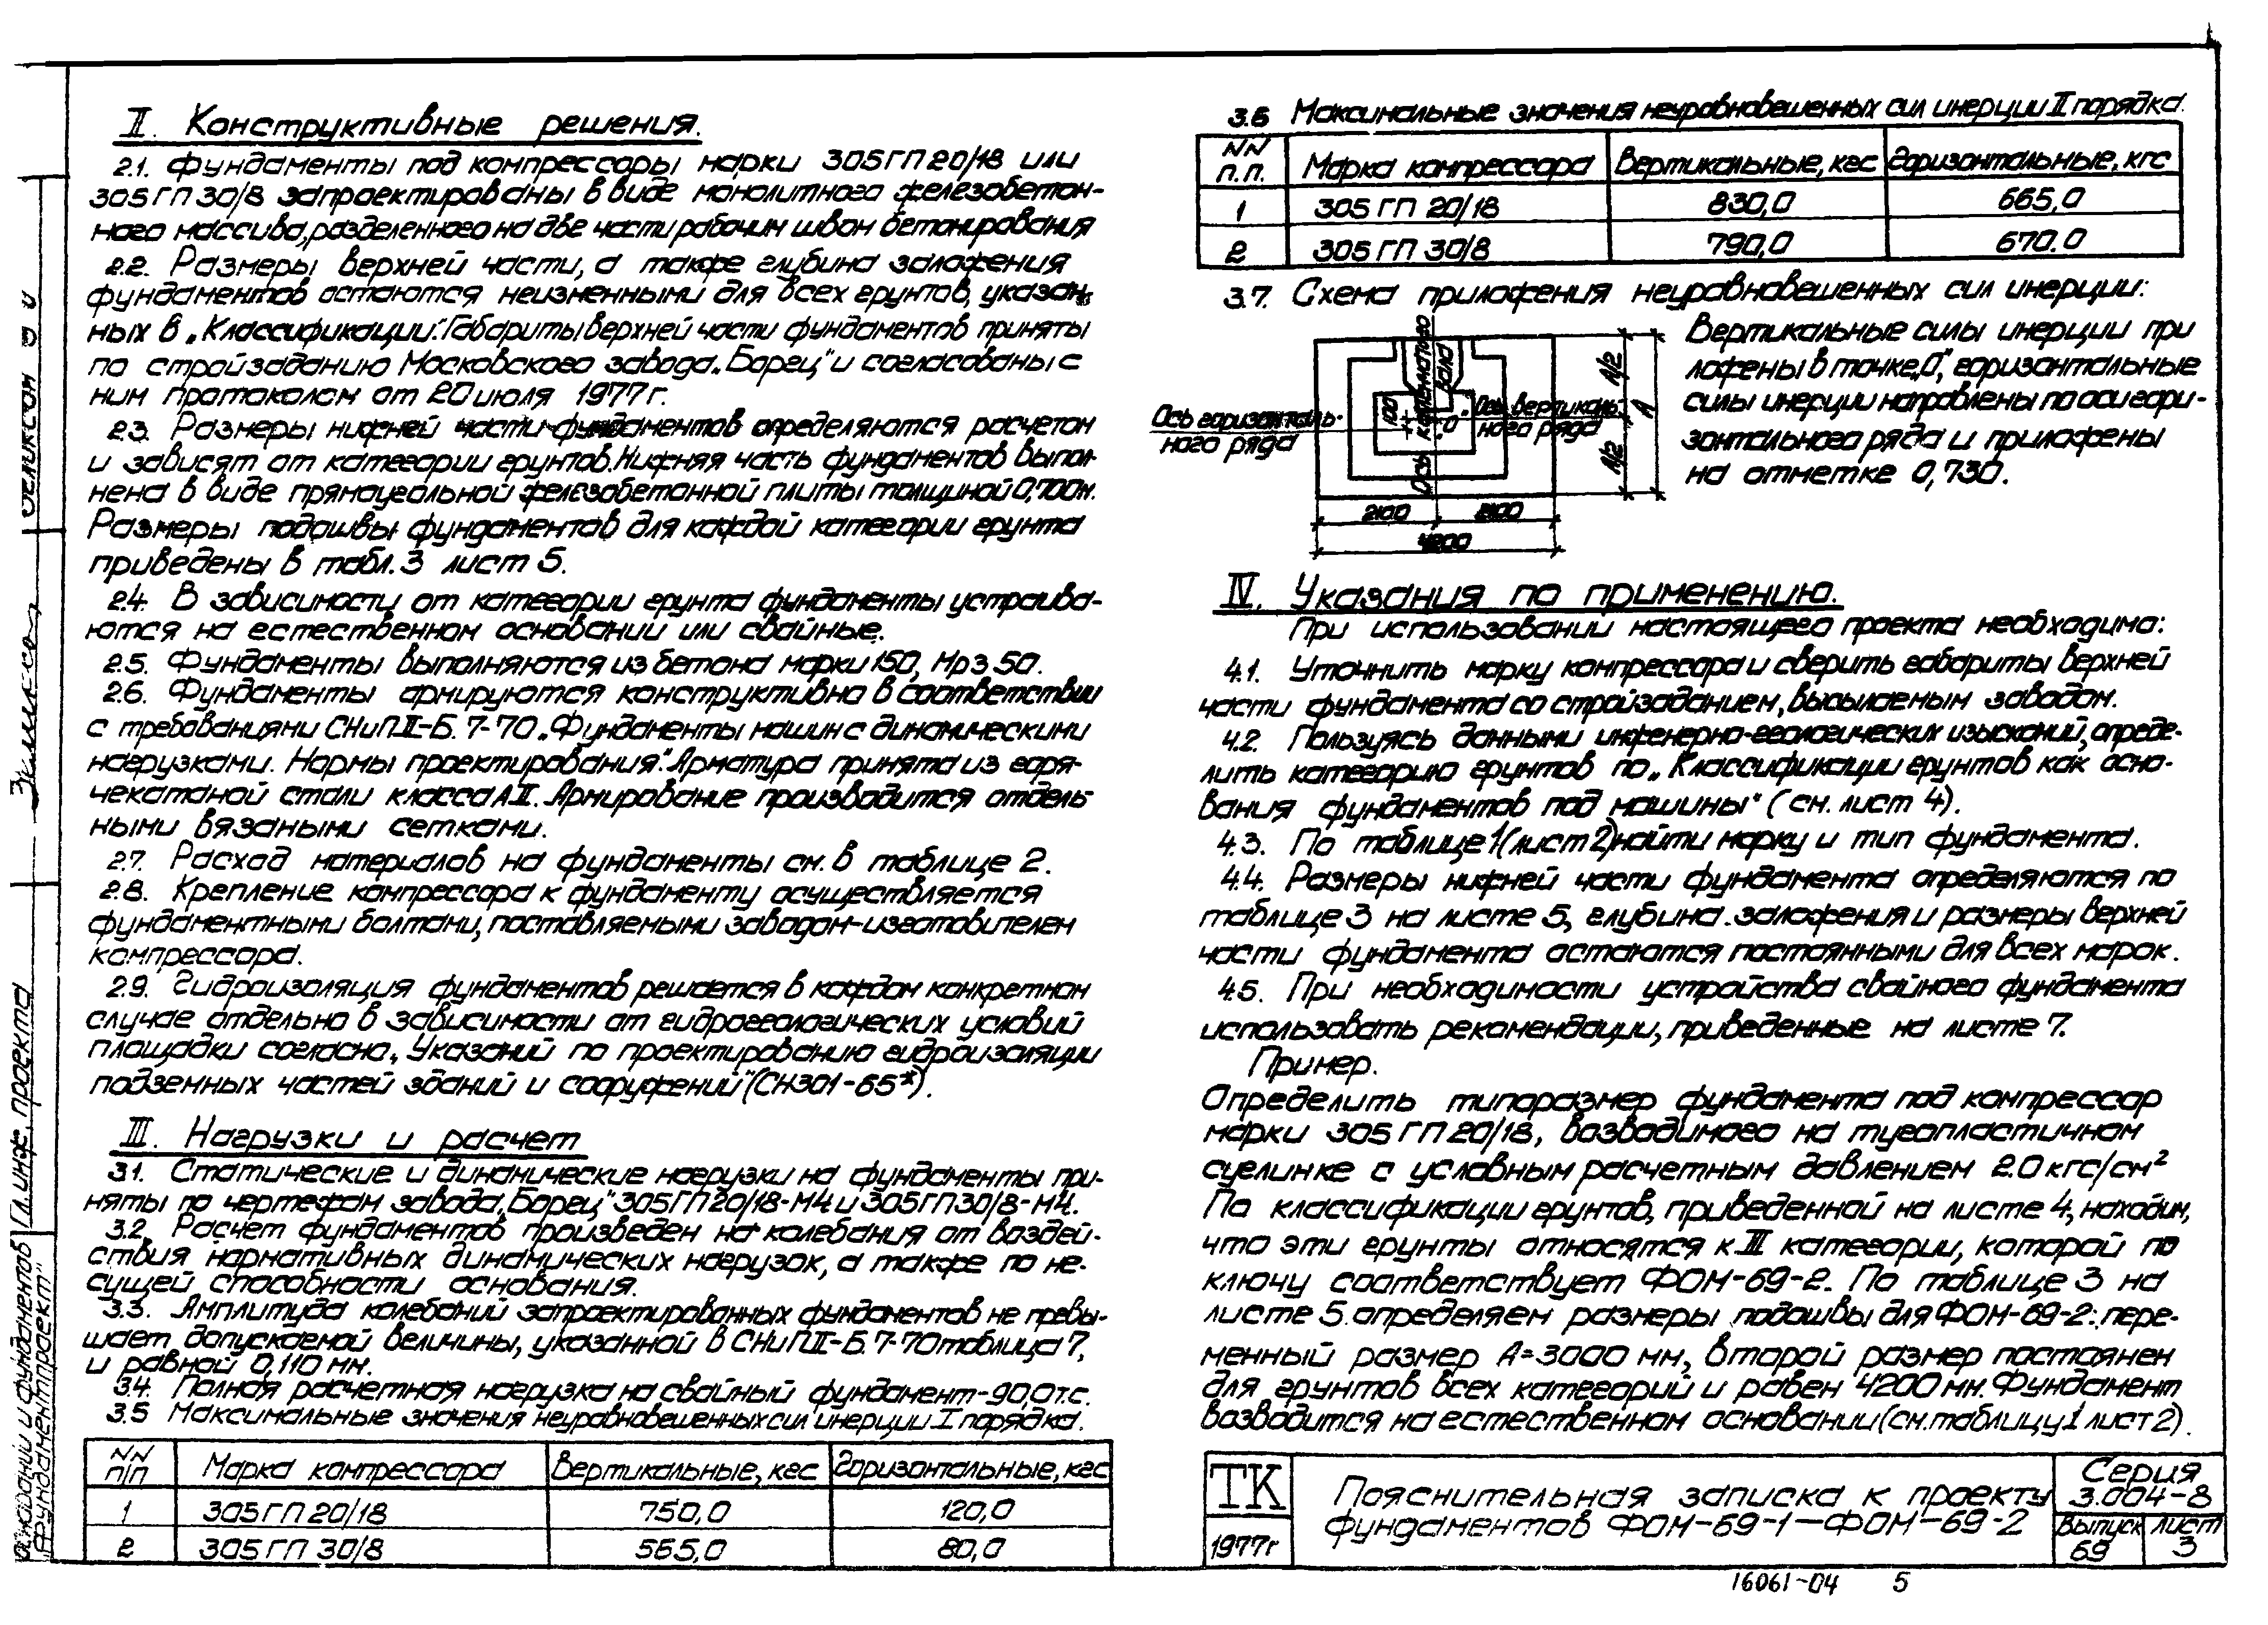 II. Конструктивные решения.
2.1. Фундаменты под компрессоры марки 305ГП 20/18 или
305ГП 30/8 запроектированы в виде монолитного железобетон-
ного массива, разделенного на две части рабочим швом бетонирования
2.2. Размеры верхней части, а также глубина заложения
фундаментов остаются неизменными для всех грунтов, указан-
ных в „Классификации". Габариты верхней части фундаментов приняты
по стройзаданию Московского завода „Борец" и согласованы с
ним протоколом от 20 июля 1977г.
2.3. Размеры нижней части фундаментов определяются расчетом
и зависят от категории грунтов. Нижняя часть фундаментов выпол-
нена в виде прямоугольной железобетонной плиты толщиной 0,700м.
Размеры подошвы фундаментов для каждой категории грунта
приведены в табл. 3 лист 5.
2.4. В зависимости от категории грунта фундаменты устраива-
ются на естественном основании или свайные.
2.5. Фундаменты выполняются из бетона марки 150, Мрз 50.
2.6. Фундаменты армируются конструктивно в соответствии
с требованиями СНиП II-Б. 7-70 „Фундаменты машин с динамическими
нагрузками. Нормы проектирования". Арматура принята из горя-
чекатаной стали класса АII. Армирование производится отдель-
ными вязаными сетками.
2.7. Расход материалов на фундаменты см. в таблице 2.
2.8. Крепление компрессора к фундаменту осуществляется
фундаментными болтами, поставляемыми заводом-изготовителем
компрессора.
2.9. Гидроизоляция фундаментов решается в каждом конкретном
случае отдельно в зависимости от гидрогеологических условий
площадки согласно „Указаний по проектированию гидроизоляции
подземных частей зданий и сооружений" (СН301-65*).
III. Нагрузки и расчет
3.1. Статические и динамические нагрузки на фундаменты при-
няты по чертежам завода „Борец" 305ГП20/18-М4 и 305ГП30/8-М4.
3.2. Расчет фундаментов произведен на колебания от воздей-
ствия нормативных динамических нагрузок, а также по не-
сущей способности основания.
3.3. Амплитуда колебаний запроектированных фундаментов не превы-
шает допускаемой величины, указанной в СНиП II-Б. 7-70 таблица 7,
и равной 0,110 мм.
3.4. Полная расчетная нагрузка на свайный фундамент-90,0т.с.
3.5 Максимальные значения неуравновешенных сил инерции I порядка.
NN п/п Марка компрессора Вертикальные, кгс Горизонтальные, кгс
1 305ГП 20/18 750,0 120,0
2 305ГП 30/8 565,0 80,0
3.6 Максимальные значения неуравновешенных сил инерции II порядка.
NN п.п. Марка компрессора Вертикальные, кгс Горизонтальные, кгс
1 305ГП 20/18 830,0 665,0
2 305ГП 30/8 790,0 670.0
3.7. Схема приложения неуравновешенных сил инерции:
Ось коленчатого
вала
Ось горизонталь-
ного ряда
Ось вертикаль-
ного ряда
100
„0"
А/2
А/2
А
2100 2100
4200
Вертикальные силы инерции при
ложены в точке „0", горизонтальные
силы инерции направлены по оси гори-
зонтального ряда и приложены
на отметке 0,730.
IV. Указания по применению.
При использовании настоящего проекта необходимо:
4.1. Уточнить марку компрессора и сверить габариты верхней
части фундамента со стройзаданием, высылаемым заводом.
4.2. Пользуясь данными инженерно-геологических изысканий, опреде-
лить категорию грунтов по „Классификации грунтов как осно-
вания фундаментов под машины" (см. лист 4).
4.3. По таблице 1 (лист 2) найти марку и тип фундамента.
4.4. Размеры нижней части фундамента определяются по
таблице 3 на листе 5, глубина заложения и размеры верхней
части фундамента остаются постоянными для всех марок.
4.5. При необходимости устройства свайного фундамента
использовать рекомендации, приведенные на листе 7.
Пример.
Определить типоразмер фундамента под компрессор
марки 305ГП20/18, возводимого на тугопластичном
суглинке с условным расчетным давлением 2.0 кгс/см²
По классификации грунтов, приведенной на листе 4, находим,
что эти грунты относятся к III категории, которой по
ключу соответствует ФОМ-69-2. По таблице 3 на
листе 5 определяем размеры подошвы для ФОМ-69-2: пере-
менный размер А=3000 мм, второй размер постоянен
для грунтов всех категорий и равен 4200мм. Фундамент
возводится на естественном основании (см. таблицу 1 лист 2).
ТК
1977г
Пояснительная записка к проекту
фундаментов ФОМ-69-1—ФОМ-69-2
Серия
3.004-8
Выпуск 69
Лист 3
16061-04 5
Гл. инж. проекта
оснований и фундаментов
Фундаментпроект"